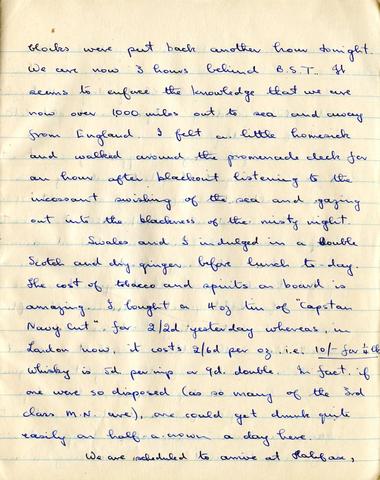 clocks were put back another hour tonight.
We are now 3 hours behind B.S.T. It
seems to enforce the knowledge that we are
now over 1000 miles out to sea and away
from England. I felt a little homesick
and walked around the promenade deck for
an hour after blackout listening to the
incessant swishing of the sea and gazing
out into the blackness of the misty night.
Swales and I indulged in a double
Scotch and dry ginger before lunch to-day.
The cost of tobacco and spirits on board is
amazing. I bought a 4 oz tin of "Capstan
Navy Cut" for 2/2d yesterday whereas, in
London now, it costs 2/6d per oz i.e. 10/- for ¼ lb
Whisky is 5d per nip or 9d. double. In fact, if
one were so disposed (as so many of the 3rd
class M.N. are), one could get drunk quite
easily on half-a-crown a day here.
We are scheduled to arrive at Halifax,